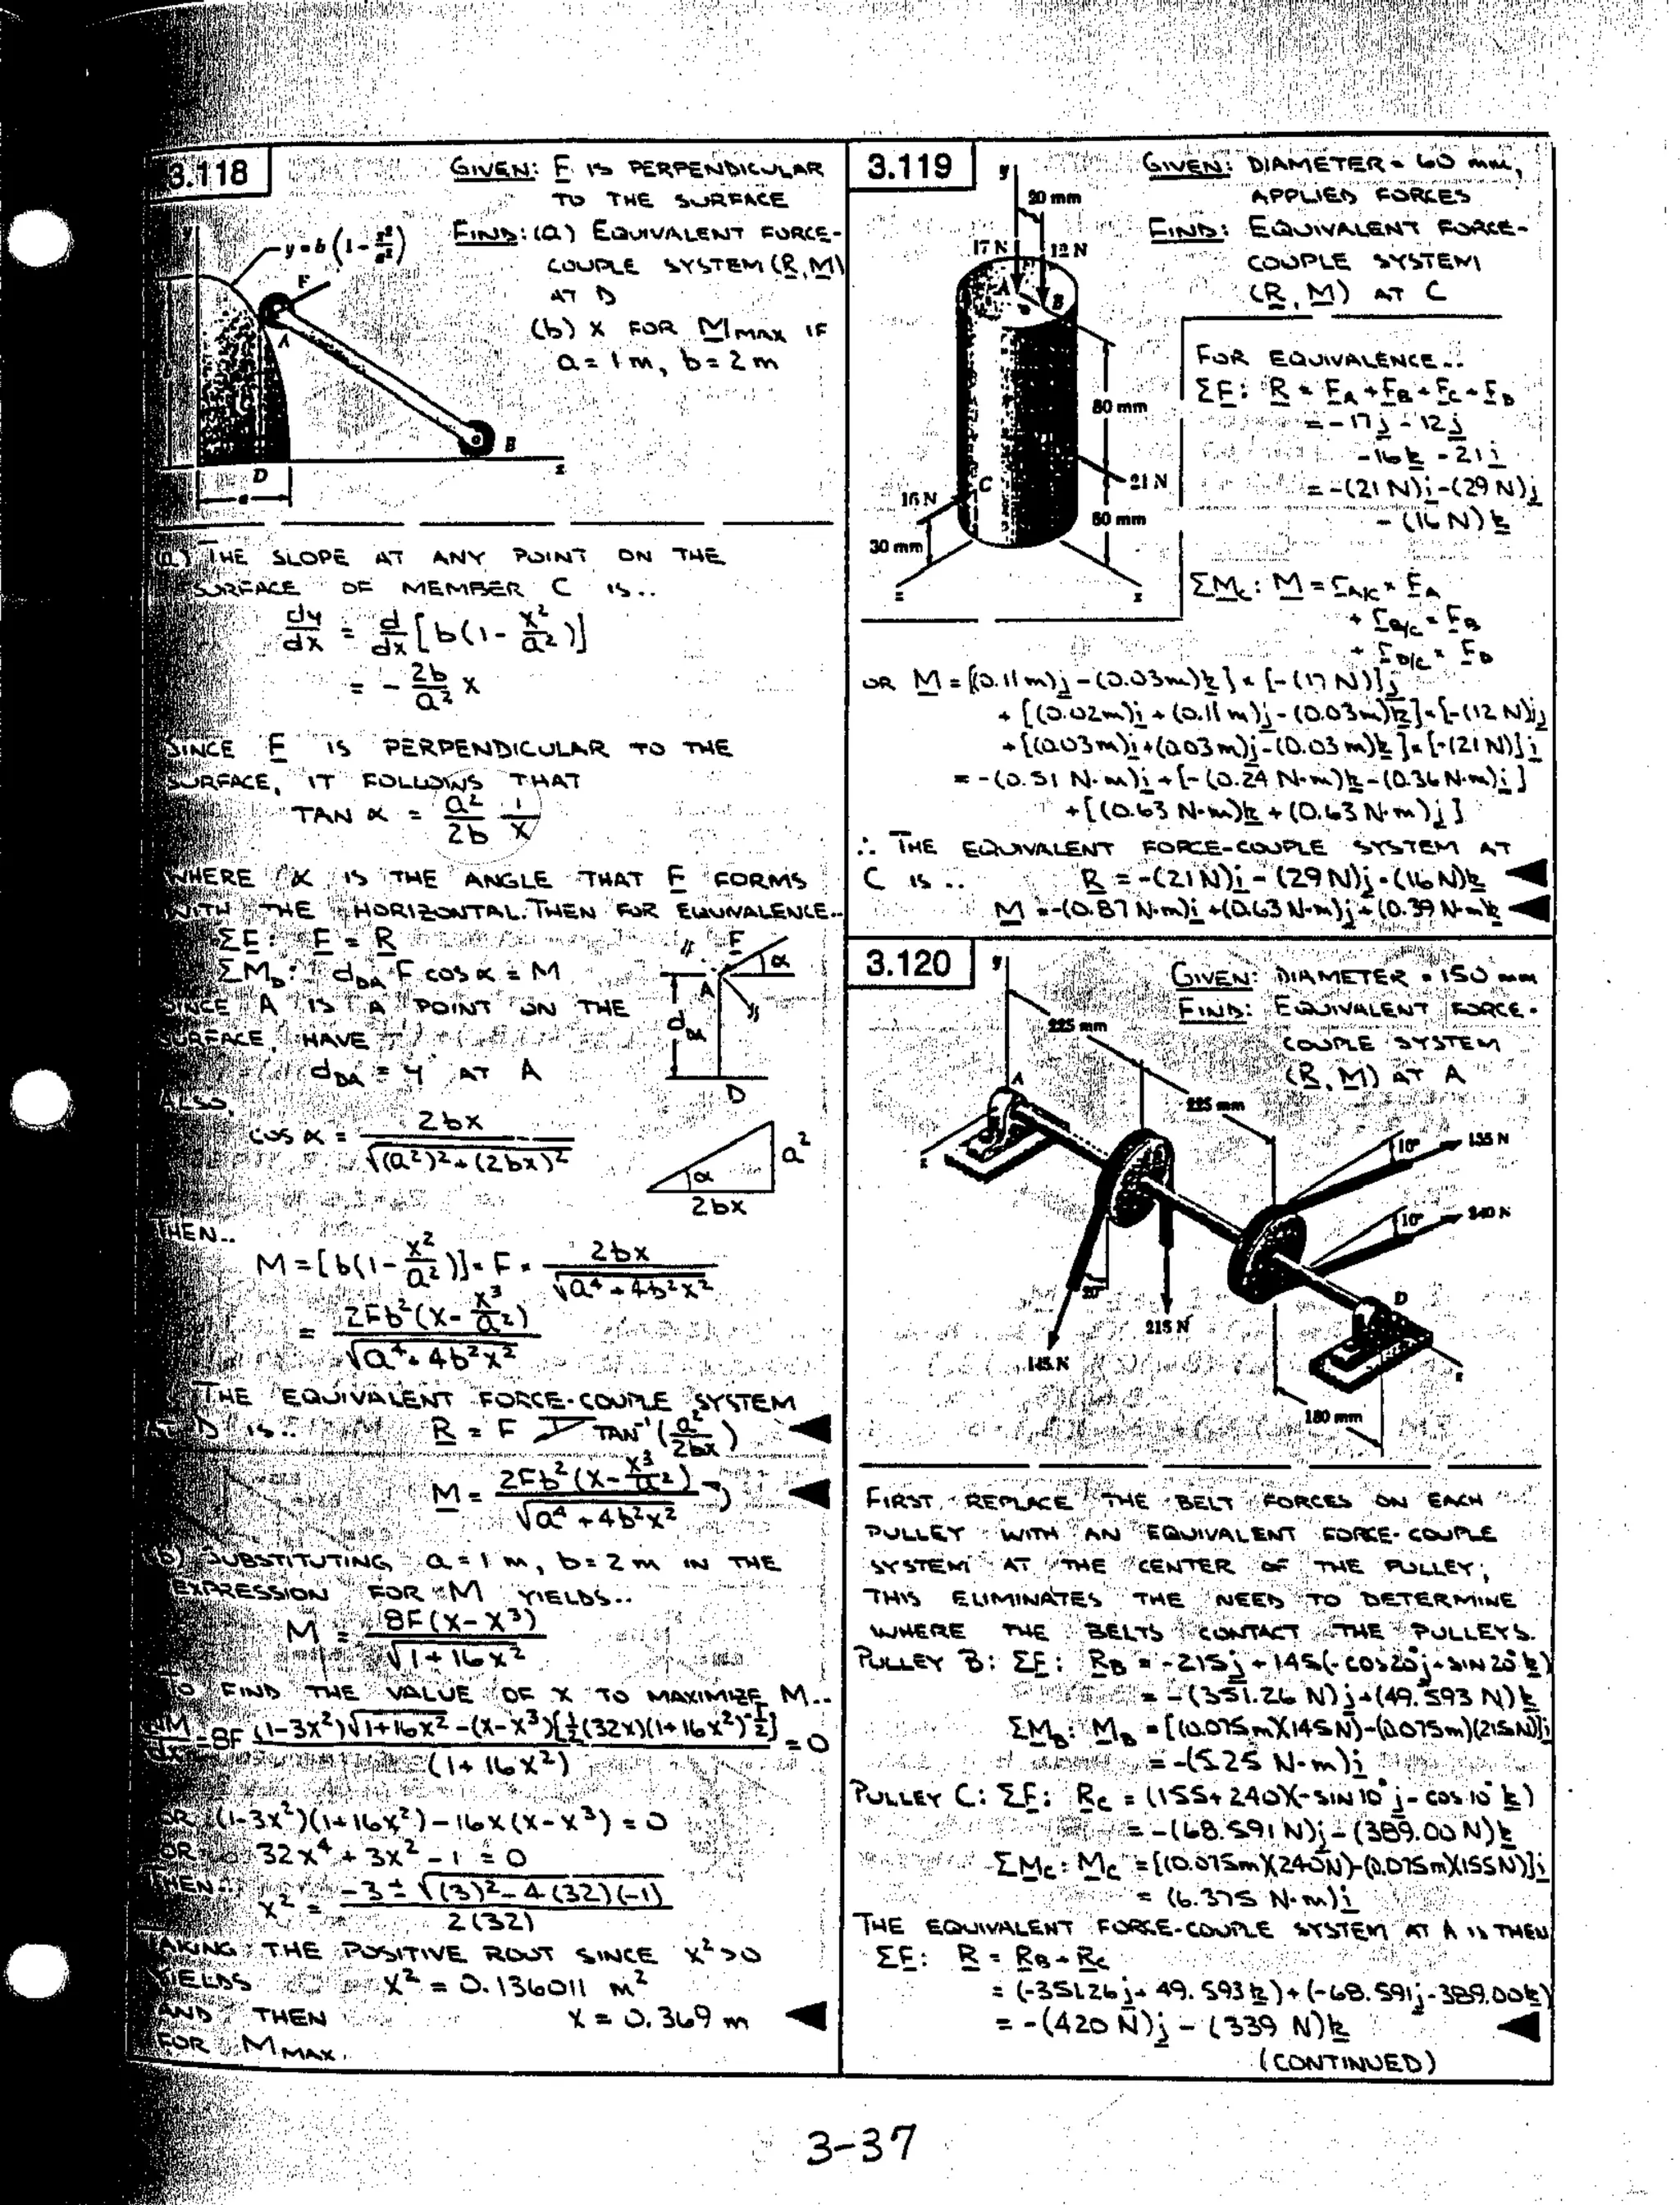 3.118
GIVEN: F IS PERPENDICULAR
TO THE SURFACE
FIND: (a) EQUIVALENT FORCE-
COUPLE SYSTEM (R, M)
AT D
(b) x FOR M MAX IF
a = 1 m, b = 2 m
y
y = b (1 - x²/a²)
F
A
B
D
x
a
(a) THE SLOPE AT ANY POINT ON THE
SURFACE OF MEMBER C IS..
dy/dx = d/dx [b(1 - x²/a²)]
= - 2b/a² x
SINCE F IS PERPENDICULAR TO THE
SURFACE, IT FOLLOWS THAT
TAN α = a²/2b 1/x
WHERE α IS THE ANGLE THAT F FORMS
WITH THE HORIZONTAL. THEN FOR EQUIVALENCE..
ΣF: F = R
ΣM_D: d_DA F cos α = M
SINCE A IS A POINT ON THE
SURFACE, HAVE
d_DA = y AT A
F
α
A
d_DA
D
ALSO,
cos α = 2bx/√((a²)² + (2bx)²
α
a²
2bx
THEN..
M = [b(1 - x²/a²)] × F × 2bx/√a⁴ + 4b²x²
= 2Fb²(x - x³/a²)/√a⁴ + 4b²x²
THE EQUIVALENT FORCE-COUPLE SYSTEM
AT D IS..
R = F TAN⁻¹(a²/2bx)
M = 2Fb²(x - x³/a²)/√a⁴ + 4b²x²
(b) SUBSTITUTING a = 1 m, b = 2 m IN THE
EXPRESSION FOR M YIELDS..
M = 8F(x - x³)/√1 + 16x²
TO FIND THE VALUE OF x TO MAXIMIZE M..
dM/dx = 8F (1-3x²)√1+16x² - (x-x³)[½(32x)(1+16x²)^-½]/(1+16x²) = 0
OR (1-3x²)(1+16x²) - 16x(x-x³) = 0
OR 32x⁴ + 3x² - 1 = 0
THEN.. x² = -3 ± √(3)² - 4(32)(-1)/2(32)
TAKING THE POSITIVE ROOT SINCE x² > 0
YIELDS x² = 0.136011 m²
AND THEN x = 0.369 m
FOR M MAX.
3.119
GIVEN: DIAMETER = 60 mm,
APPLIED FORCES
FIND: EQUIVALENT FORCE-
COUPLE SYSTEM
(R, M) AT C
y
20 mm
17 N
12 N
A
B
80 mm
21 N
C
16 N
80 mm
30 mm
z
x
FOR EQUIVALENCE...
ΣF: R = F_A + F_B + F_C + F_D
= -17j - 12j
-16k - 21i
= -(21 N)i - (29 N)j
- (16 N)k
ΣM_C: M = r_A/C × F_A
+ r_B/C × F_B
+ r_D/C × F_D
OR M = [(0.11 m)j - (0.03 m)k] × [-(17 N)]j
+ [(0.02m)i + (0.11 m)j - (0.03 m)k] × [-(12 N)]j
+ [(0.03m)i + (0.03 m)j - (0.03 m)k] × [-(21 N)]i
= -(0.51 N·m)i + [-(0.24 N·m)k - (0.36 N·m)i]
+ [(0.63 N·m)k + (0.63 N·m)j]
∴ THE EQUIVALENT FORCE-COUPLE SYSTEM AT
C IS.. R = -(21 N)i - (29 N)j - (16 N)k
M = -(0.87 N·m)i + (0.63 N·m)j + (0.39 N·m)k
3.120
GIVEN: DIAMETER = 150 mm
FIND: EQUIVALENT FORCE-
COUPLE SYSTEM
(R, M) AT A
y
225 mm
A
225 mm
z
10°
155 N
10°
240 N
20°
215 N
145 N
D
x
180 mm
FIRST REPLACE THE BELT FORCES ON EACH
PULLEY WITH AN EQUIVALENT FORCE-COUPLE
SYSTEM AT THE CENTER OF THE PULLEY;
THIS ELIMINATES THE NEED TO DETERMINE
WHERE THE BELTS CONTACT THE PULLEYS.
PULLEY B: ΣF: R_B = -215j + 145(-cos20°j + sin20°k)
= -(351.26 N)j + (49.593 N)k
ΣM_B: M_B = [(0.075m)(145N) - (0.075m)(215N)]i
= -(5.25 N·m)i
PULLEY C: ΣF: R_C = (155 + 240)(-sin10°j - cos10°k)
= -(68.591 N)j - (389.00 N)k
ΣM_C: M_C = [(0.075m)(240N) - (0.075m)(155N)]i
= (6.375 N·m)i
THE EQUIVALENT FORCE-COUPLE SYSTEM AT A IS THEN
ΣF: R = R_B + R_C
= (-351.26j + 49.593k) + (-68.591j - 389.00k)
= -(420 N)j - (339 N)k
(CONTINUED)
3-37